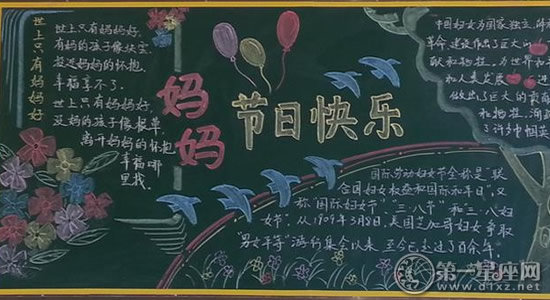 世上只有妈妈好
世上只有妈妈好,
有妈的孩子像块宝,
投进妈妈的怀抱,
幸福享不了。
世上只有妈妈好,
没妈的孩子像根草,
离开妈妈的怀抱,
幸福哪
里找。
妈妈
节日快乐
中国妇女为国家独立、
革命、建设作出了巨大
献和牺牲,为世界和平
和人类发展
做出了巨大的贡献
和牺牲,涌
了许多中帼英
国际劳动妇女节全称是"联
合国妇女权益和国际和平日",又
称"国际妇女节""三·八节"和"三·八妇
女节"。从1909年3月8日,美国芝加哥妇女争取
"男女平等"游行集会以来,至今已走过了百余年。
第一星座网
www.d1xz.net